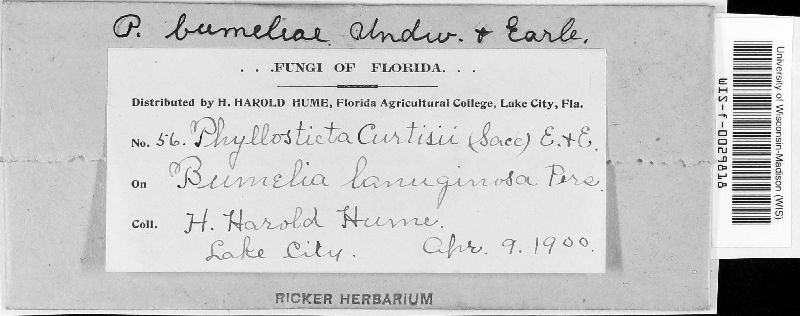 P. bumeliae Undw. & Earle.
. . .FUNGI OF FLORIDA. . .
Distributed by H. HAROLD HUME, Florida Agricultural College, Lake City, Fla.
No. 56. Phyllosticta Curtisii (Sacc) E. & E.
On Bumelia lanuginosa Pers.
Coll. H. Harold Hume.
Lake City. Apr. 9. 1900.
RICKER HERBARIUM
University of Wisconsin-Madison (WIS)
WIS-f-0029818